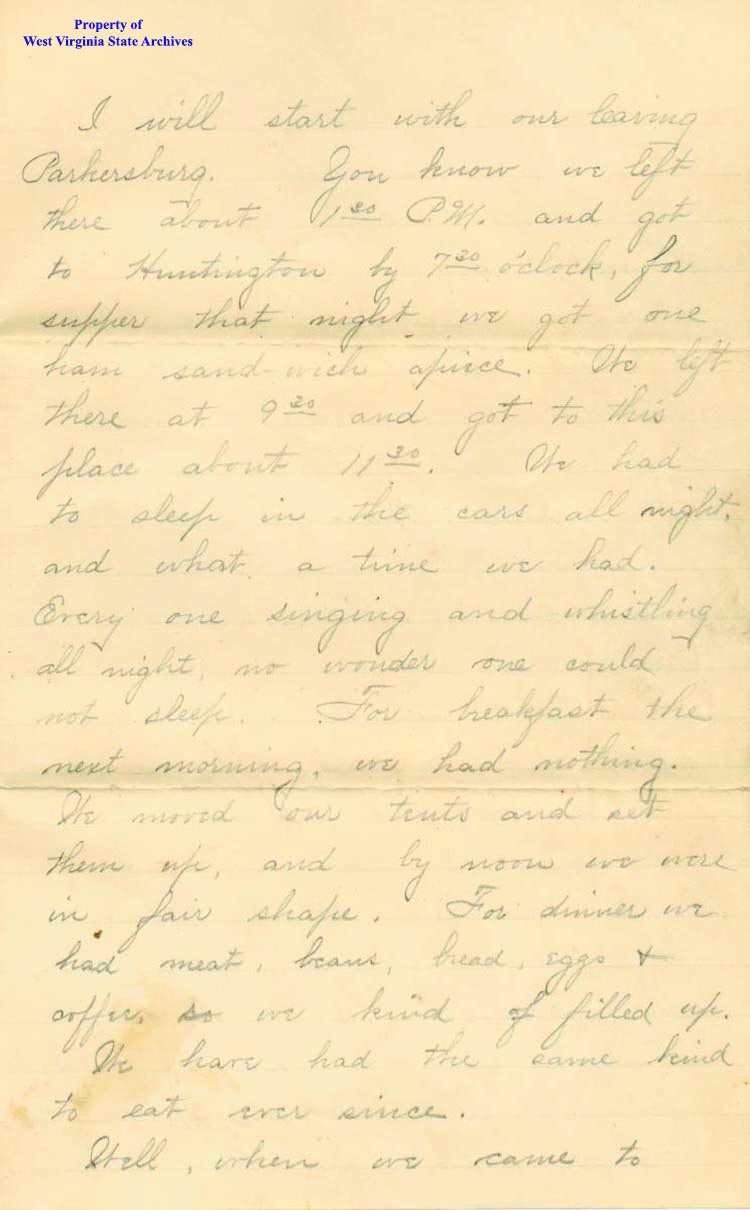 Property of
West Virginia State Archives
I will start with our leaving
Parkersburg. You know we left
there about 1 30 P.M. and got
to Huntington by 7 30 o'clock, for
supper that night we got one
ham sand-wich apiece. We left
there at 9 30 and got to this
place about 11 30. We had
to sleep in the cars all night,
and what a time we had.
Every one singing and whistling
all night, no wonder one could
not sleep. For breakfast the
next morning, we had nothing.
We moved our tents and set
them up, and by noon we were
in fair shape. For dinner we
had meat, beans, bread, eggs &
coffee, so we kind of filled up.
We have had the same kind
to eat ever since.
Well, when we came to